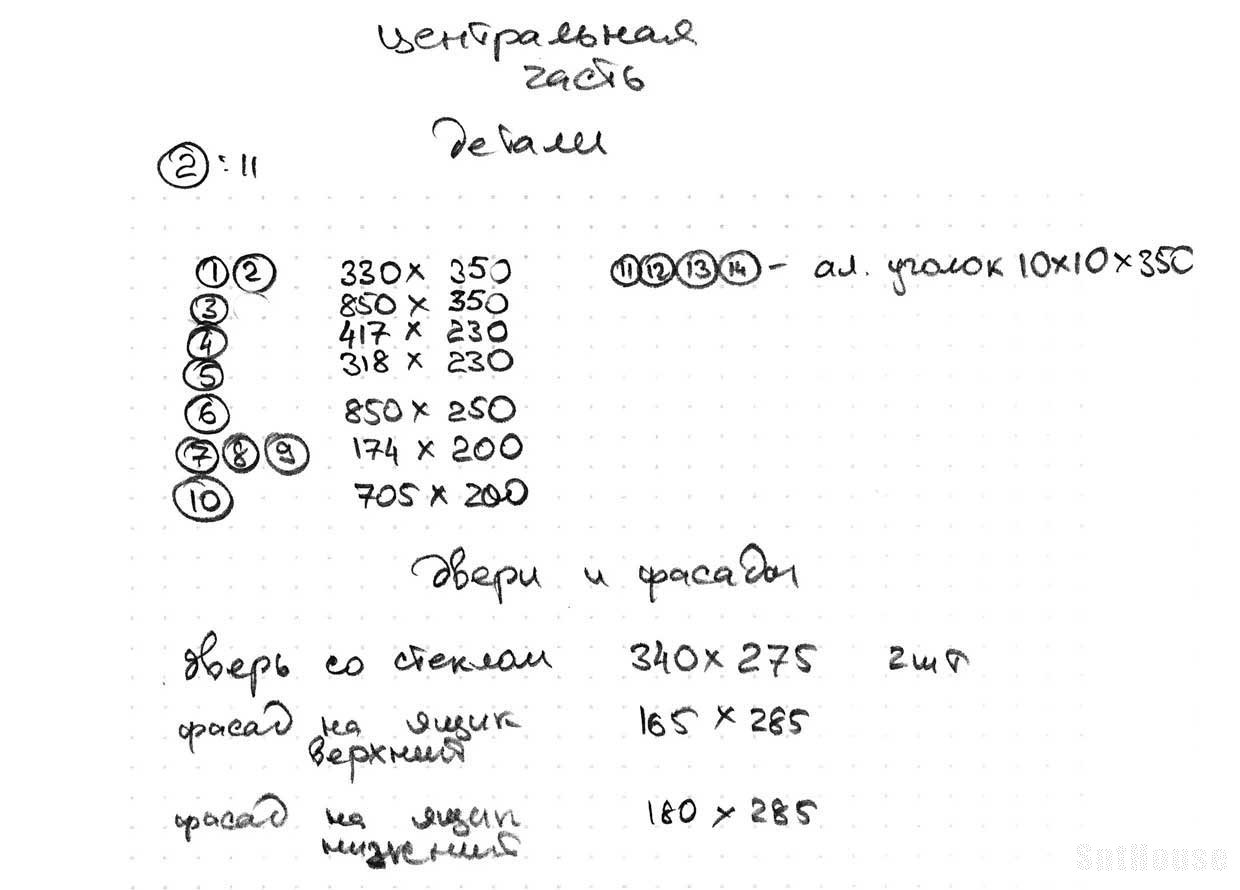 центральная
часть
детали
② : 11
① ② 330 × 350 ⑪ ⑫ ⑬ ⑭ - ал. уголок 10×10×350
③ 850 × 350
④ 417 × 230
⑤ 318 × 230
⑥ 850 × 250
⑦ ⑧ ⑨ 174 × 200
⑩ 705 × 200
двери и фасады
дверь со стеклом 340 × 275 2 шт
фасад на ящик 165 × 285
верхний
фасад на ящик 180 × 285
нижний
SntHouse